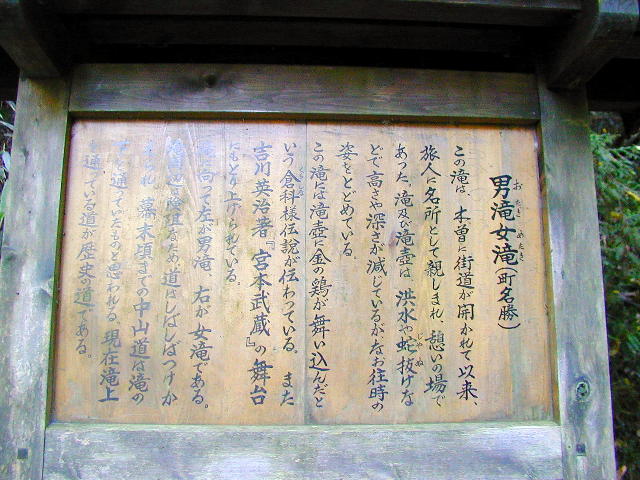 男滝女滝(町名勝)
おだき めだき
この滝は、木曽に街道が開かれて以来、
旅人に名所として親しまれ、憩いの場で
あった。滝及び滝壺は、洪水や蛇抜けな
じゃ ぬ
どで高さや深さが減じているがなお往時の
姿をとどめている。
この滝には滝壺に金の鶏が舞い込んだと
いう倉科様伝説が伝わっている。また
くらしな
吉川英治著『宮本武蔵』の舞台
にもとり上げられている。
向って左が男滝、右が女滝である。
道はしばしばつけか
られ 幕末頃までの中山道は滝の
を通っていたものと思われる。現在滝上
を通っている道が歴史の道である。